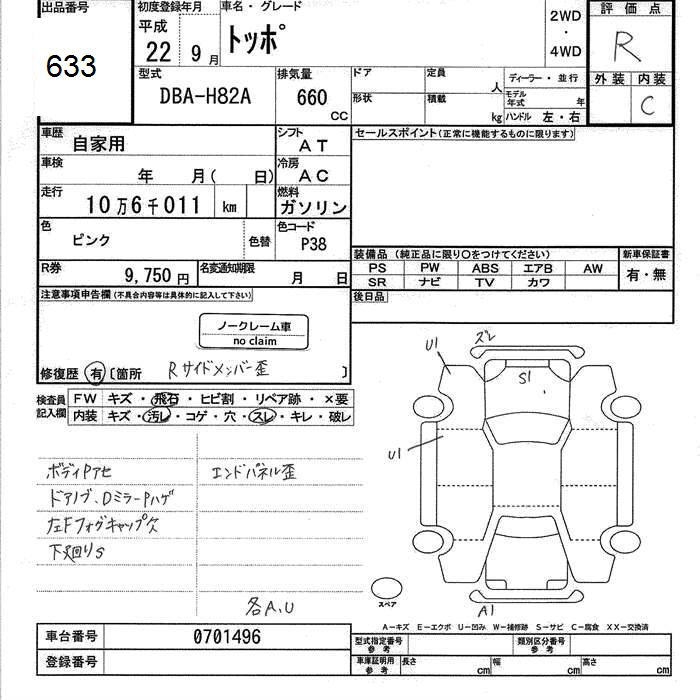 出品番号 初度登録年月 車名・グレード 2WD 評価点
633 平成 22 9月 トッポ ・ 4WD R
型式 排気量 ドア 定員 人 ディーラー・並行 外装 内装
DBA-H82A 660 CC 形状 積載 kg モデル年式 年 C
ハンドル 左・右
車歴 自家用 シフト AT セールスポイント(正常に機能するものに限ります)
車検 年 月( 日) 冷房 AC
走行 10万6千011 km 燃料 ガソリン
色 ピンク 色替 色コード P38
装備品 (純正品に限り○をつけてください) 新車保証書
PS PW ABS エアB AW 有・無
SR ナビ TV カワ
R券 9,750円 名変通知期限 月 日
後日品
注意事項申告欄(不具合内容等は具体的に記入して下さい)
ノークレーム車
no claim
修復歴 有 〔箇所 Rサイドメンバー歪 〕
検査員記入欄 FW キズ・飛石・ヒビ割・リペア跡・×要
内装 キズ・汚レ・コゲ・穴・スレ・キレ・破レ
U1 ズレ
S1
U1
ボディPアセ エンドパネル歪
ドアノブ、DミラーPハゲ
左Fフォグキャップ欠
下廻りS
各A,U
スペア A1
A−キズ E−エクボ U−凹み W−補修跡 S−サビ C−腐食 XX−交換済
車台番号 0701496 型式指定番号 参考 類別区分番号 参考
登録番号 車庫証明用 参考 長さ cm 幅 cm 高さ cm